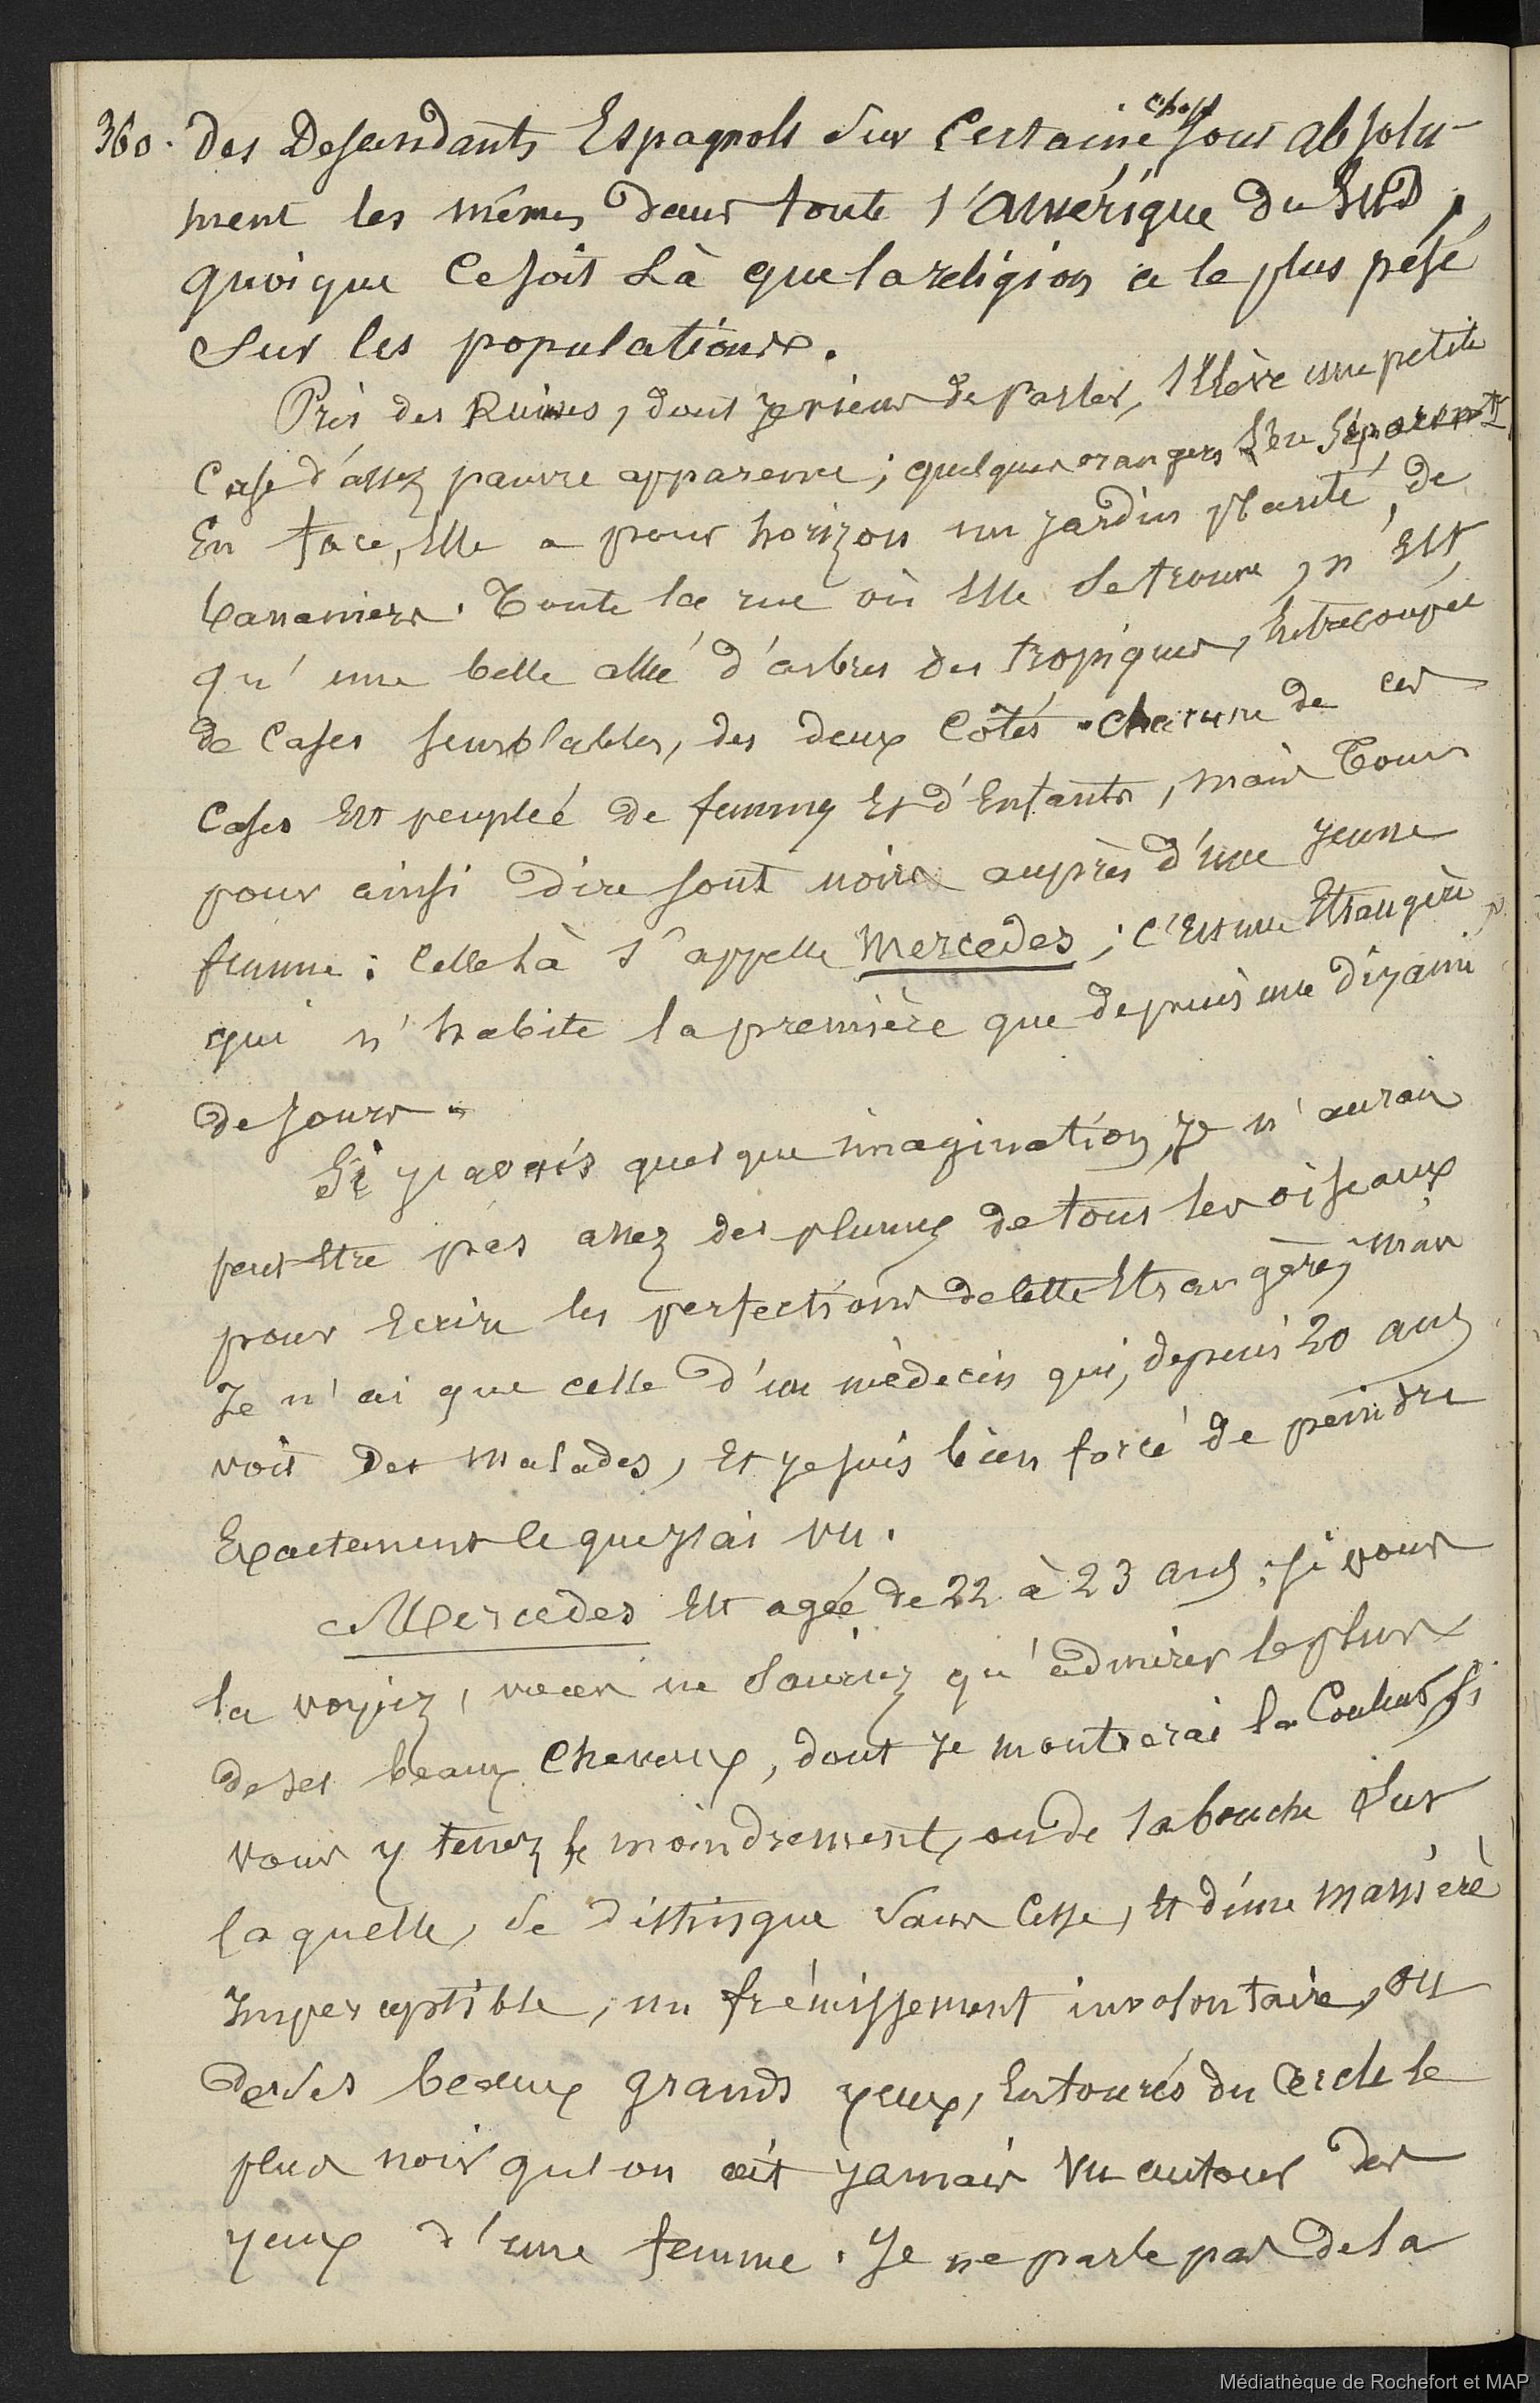 360. des Descendants Espagnols sur Certaine chose sont absolu-
ment les mêmes dans toute l'amérique du Sud,
quoique Ce soit là que la religion a le plus pesé
sur les populations.
Près des Ruines, dont je viens de parler, s'élève une petite
Case d'assez pauvre apparence; quelques orangers l'en séparent
En face, Elle a pour horizon un jardin planté, de
bananiers. Toute la rue où Elle se trouve, n'Est
qu'une belle allé d'arbres des tropiques, Entrecoupée
de Cases semblables, des deux Côtés. Chacune de ces
Cases Est peupleé de femmes Et d'Enfants, mais Tous
pour ainsi dire sont noirs auprès d'une jeune
femme: Celle là s'appelle Mercedes; C'Est une Etrangère
qui n'habite la première que depuis une dizaine
de jours.
Si j'avais quelque imagination, je n'aurais
peut Etre pas assez des plumes de tous les oiseaux
pour Ecrire les perfections de Cette Etrangère, mais
Je n'ai que celle d'un mèdecin qui, depuis 20 ans
voit des malades, Et je suis bien forcé de peindre
Exactement Ce que j'ai vu.
Mercedes Est ageé de 22 à 23 ans; si vous
la voyiez, vous ne sauriez qu'admirer le plus
de ses beaux Cheveux, dont je montrerai la Couleur si
vous y tenez le moindrement, ou de sa bouche sur
laquelle, se distingue sans Cesse, Et d'une manierè
Imperceptible, un frémissement involontaire, ou
de ses beaux grands yeux, Entourés du Cercle le
plus noir qu'on ait jamais vu autour des
yeux d'une femme. Je ne parle pas de la
Médiathèque de Rochefort et MAP